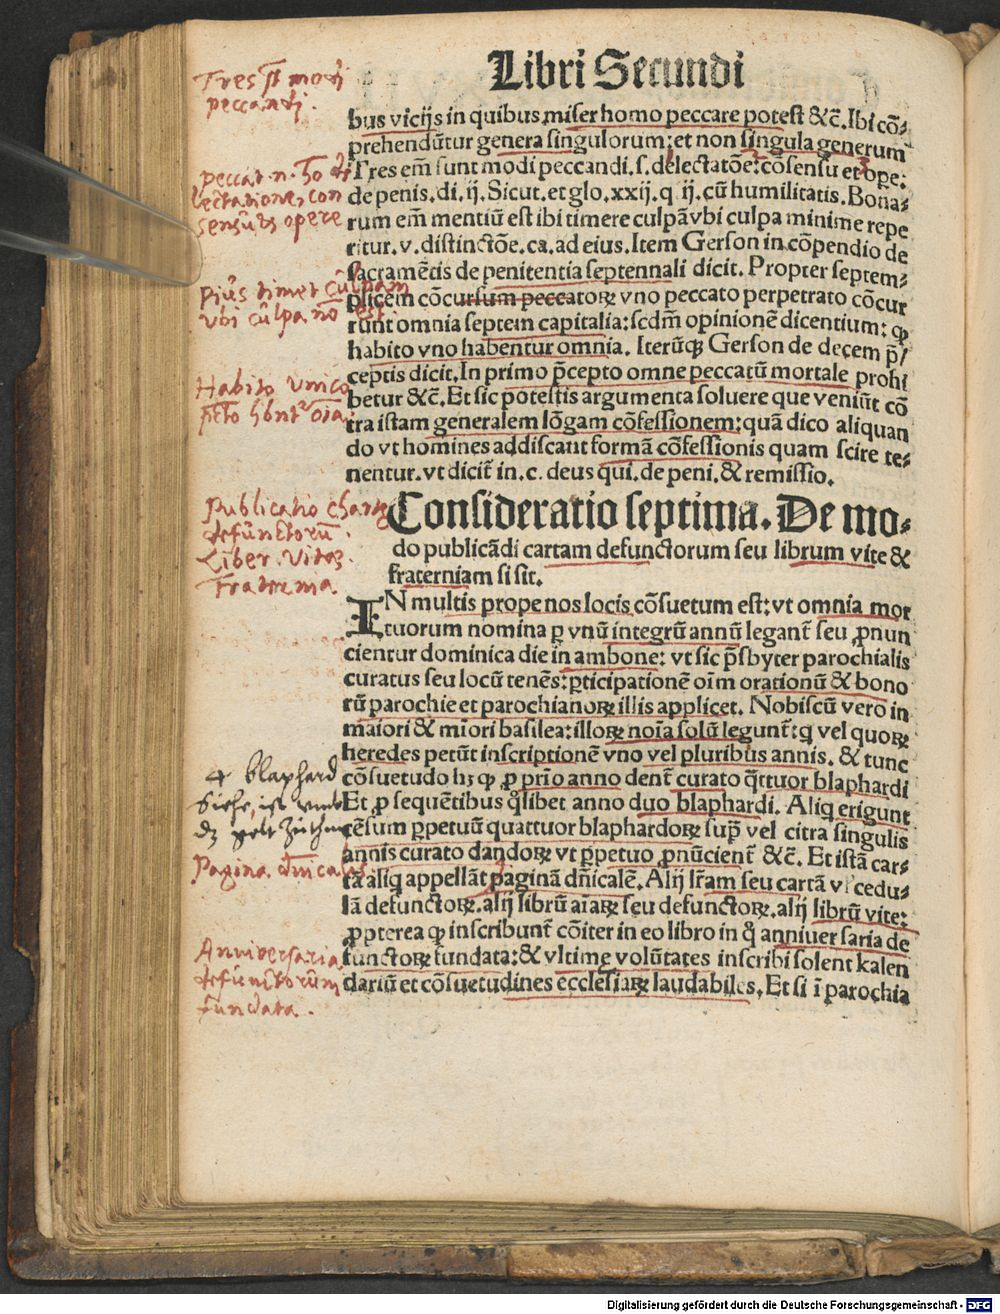 Libri Secundi
bus vicijs in quibus miser homo peccare potest &c̄. Ibi cō⸗
prehendūtur genera singulorum: et non singula generum
Tres em̄ sunt modi peccandi. s. delectatōe: cōsensu et ope:
de penis. di. ij. Sicut. et glo. xxij. q. ij. cū humilitatis. Bona⸗
rum em̄ mentiū est ibi timere culpā vbi culpa minime repe
ritur. v. distinctōe. ca. ad eius. Item Gerson in cōpendio de
sacramētis de penitentia septennali dicit. Propter septem⸗
plicem cōcursum peccatoꝝ vno peccato perpetrato cōcur
runt omnia septem capitalia: scdm̄ opinionē dicentium: ꝙ
habito vno habentur omnia. Iterūꝗ Gerson de decem p̄/
ceptis dicit. In primo p̄cepto omne peccatū mortale prohi
betur &c̄. Et sic potestis argumenta soluere que veniūt cō
tra istam generalem lōgam cōfessionem: quā dico aliquan
do vt homines addiscant formā cōfessionis quam scire te⸗
nentur. vt dicit̄ in. c. deus qui. de peni. & remissio.
Consideratio septima. De mo⸗
do publicādi cartam defunctorum seu librum vite &
fraterniam si sit.
IN multis prope nos locis cōsuetum est: vt omnia mor
tuorum nomina ꝑ vnū integrū annū legant̄ seu ꝓnun
cientur dominica die in ambone: vt sic p̄sbyter parochialis
curatus seu locū tenēs: ꝑticipationē oīm orationū & bono
rū parochie et parochianoꝝ illis applicet. Nobiscū vero in
maiori & mīori basilea: illoꝝ noīa solū legunt̄: q̄ vel quoꝝ
heredes petūt inscriptionē vno vel pluribus annis. & tunc
cōsuetudo hꝫ ꝙ ꝓ prīo anno dent̄ curato q̄ttuor blaphardi
Et ꝓ sequētibus q̄libet anno duo blaphardi. Aliq erigunt
cēsum ꝑpetuū quattuor blaphardoꝝ sup̄ vel citra singulis
annis curato dandoꝝ vt ꝑpetuo ꝓnūcient̄ &c̄. Et istā car⸗
tā aliq appellāt paginā dn̄icalē. Alij lr̄am seu cartā vl cedu⸗
lā defunctoꝝ. alij librū aīaꝝ seu defunctoꝝ. alij librū vite:
ꝓpterea ꝙ inscribunt̄ cōiter in eo libro in q̄ anniuersaria de
functoꝝ fundata: & vltime volūtates inscribi solent kalen
dariū et cōsuetudines ecclesiaꝝ laudabiles. Et si ī parochia
Tres modi
peccandi.
lectatione, con
sensu opere
pius timet culpam
ubi culpa nō est
Habito unico
Publicatio
defunctorū.
Liber. Vitae.
Fraternia.
4 blaphard
Pagina dn̄icalis
Anniversaria
defunctorūm
fundata.
Digitalisierung gefördert durch die Deutsche Forschungsgemeinschaft - DFG